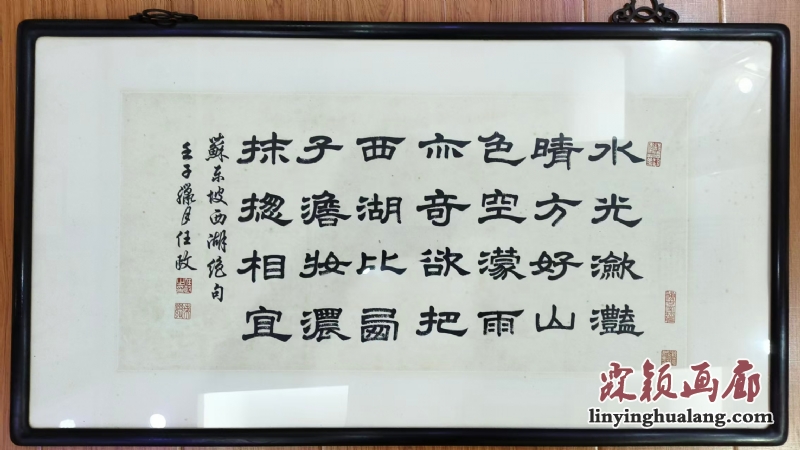 水光瀲灩
晴方好山
色空濛雨
亦奇欲把
西湖比卥
子澹妝濃
抹揔相宜
蘇東坡西湖絕句
壬子臘月任政
霖颖画廊
linyinghualang.com